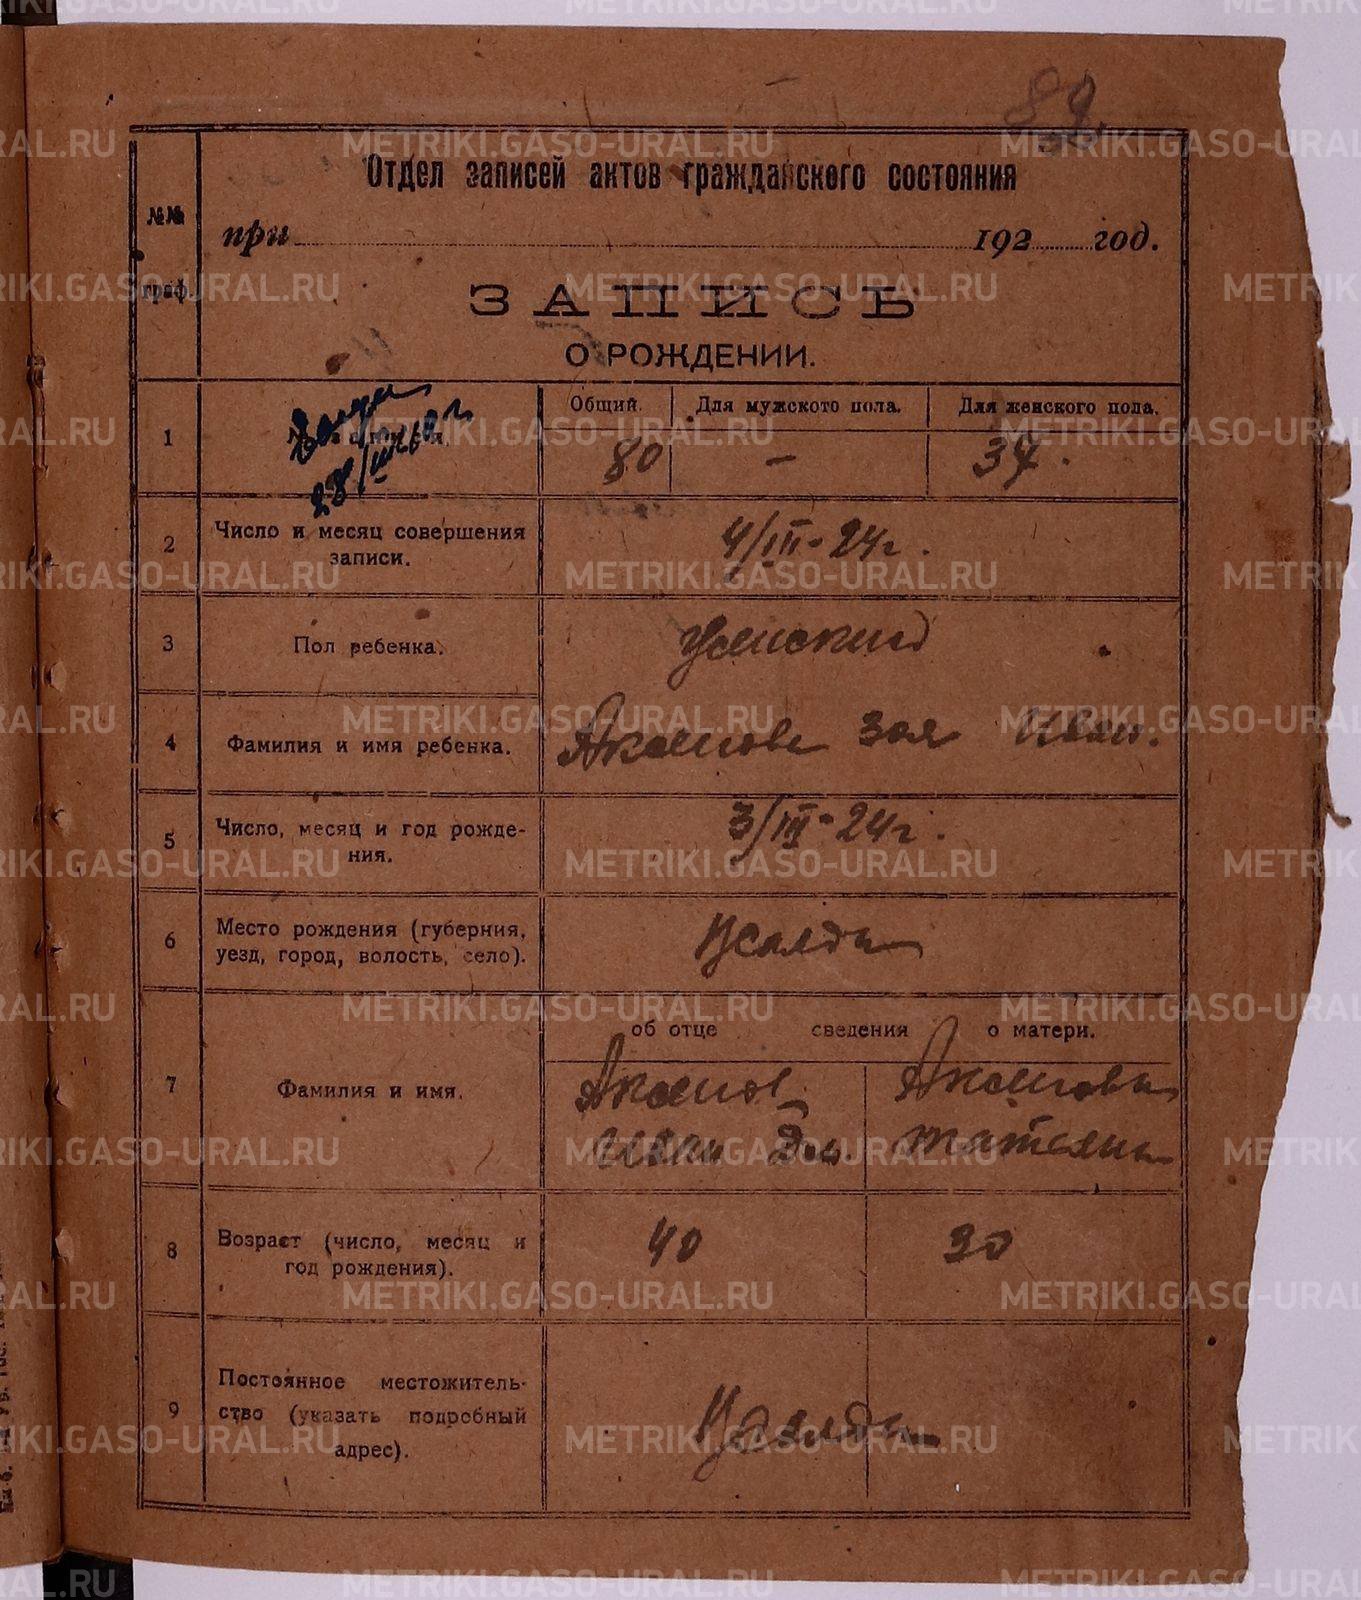 89
Отдел записей актов гражданского состояния
№№ граф.
при 192 год.
ЗАПИСЬ
О РОЖДЕНИИ.
28/III 60 г
Общий. Для мужского пола. Для женского пола.
1 № записи. 80 — 34.
2 Число и месяц совершения записи. 4/III-24г.
3 Пол ребенка. Женский
4 Фамилия и имя ребенка. Зоя Иван.
5 Число, месяц и год рожде-
ния. 3/III-24г.
6 Место рождения (губерния,
уезд, город, волость, село).
об отце сведения о матери.
7 Фамилия и имя.
Иван Татьяна
8 Возраст (число, месяц и
год рождения). 40 30
9 Постоянное местожитель-
ство (указать подробный
адрес).
METRIKI.GASO-URAL.RU